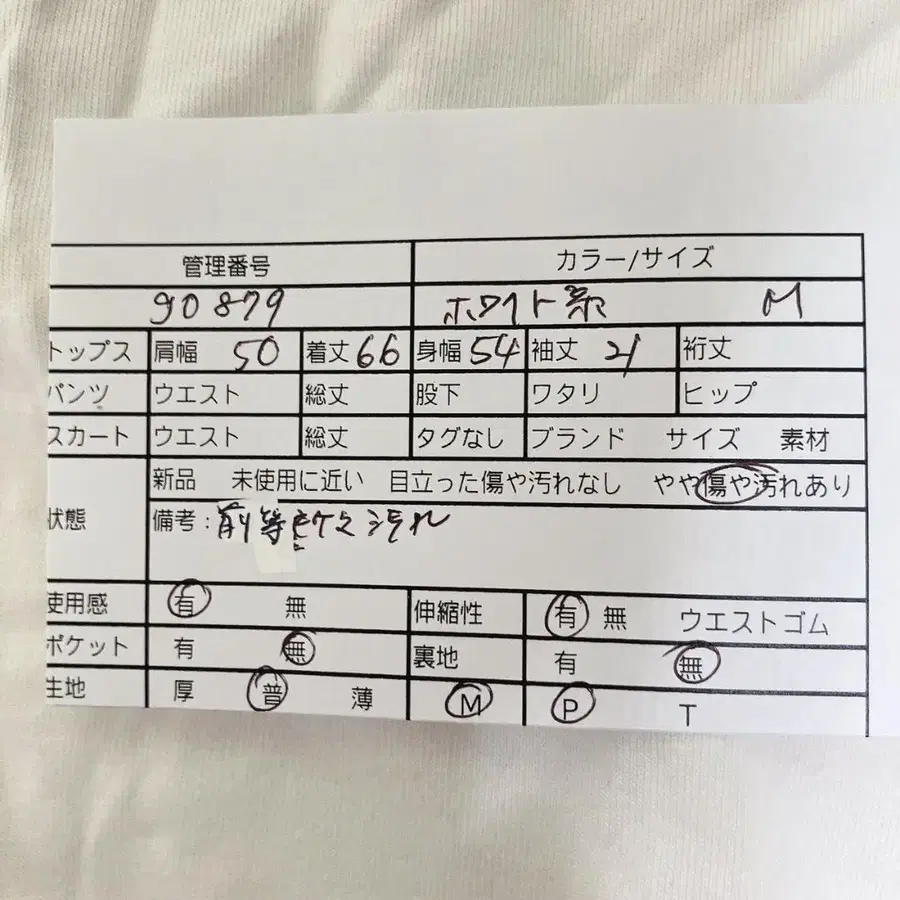 管理番号 カラー/サイズ
90879 ホワイト系 M
トップス 肩幅 50 着丈 66 身幅 54 袖丈 21 裄丈
パンツ ウエスト 総丈 股下 ワタリ ヒップ
スカート ウエスト 総丈 タグなし ブランド サイズ 素材
新品 未使用に近い 目立った傷や汚れなし やや傷や汚れあり
状態 備考:前 汚れ
使用感 有 無 伸縮性 有 無 ウエストゴム
ポケット 有 無 裏地 有 無
生地 厚 普 薄 M P T